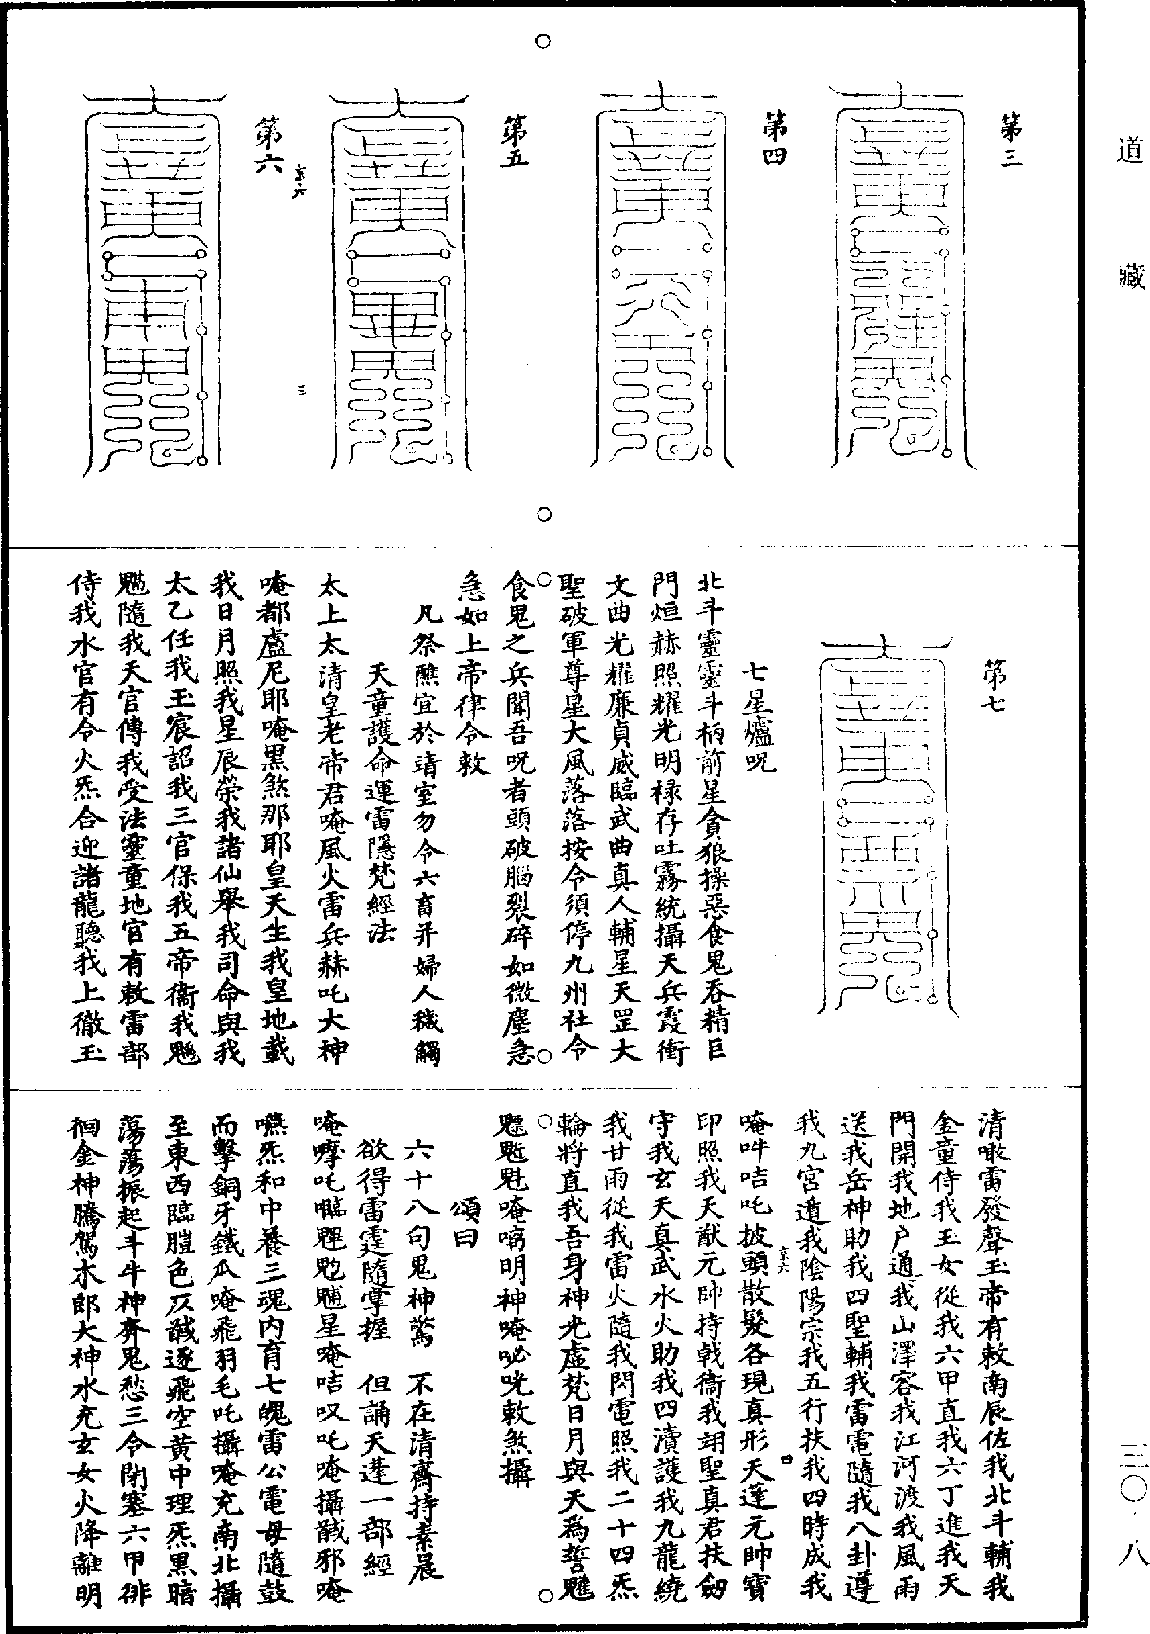 道藏
第三
第四
第五
第六
第七
七星爐呪
北斗靈靈斗柄前星貪狼操惡食鬼吞精巨
門烜赫照耀光明祿存吐霧統攝天兵霞衝
文曲光耀廉貞威臨武曲真人輔星天罡大
聖破軍尊星大風落落按令須停九州社令
食鬼之兵聞吾呪者頭破腦裂碎如微塵急
急如上帝律令敕
凡祭醮宜於靖室勿令六畜并婦人穢觸
天童護命運雷隱梵經法
太上太清皇老帝君唵風火雷兵赫吒大神
唵都盧尼耶唵黑煞那耶皇天生我皇地載
我日月照我星辰榮我諸仙舉我司命與我
太乙任我玉宸詔我三官保我五帝衛我魁
魒隨我天官傳我受法靈童地官有敕雷部
侍我水官有令火炁合迎諸龍聽我上徹玉
清噉雷發聲玉帝有敕南辰佐我北斗輔我
金童侍我玉女從我六甲直我六丁進我天
門開我地户通我山澤容我江河渡我風雨
送我岳神助我四聖輔我雷電隨我八卦遵
我九宮遁我陰陽宗我五行扶我四時成我
唵吽咭吒披頭散髮各現真形天蓬元帥寶
印照我天猷元帥持戟衛我翊聖真君扶劒
守我玄天真武水火助我四瀆護我九龍繞
我甘雨從我雷火隨我閃電照我二十四炁
輪將直我吾身神光虛梵日月與天為誓魋
唵嗃明神唵咇咣敕煞攝
頌曰
六十八句鬼神驚　不在清齋持素晨
欲得雷霆隨掌握　但誦天蓬一部經
唵嚤吒星唵咭㕥吒唵攝馘邪唵
嚥炁和中養三魂内育七魄雷公電母隨鼓
而擊銅牙鐵爪唵飛羽毛吒攝唵充南北攝
至東西臨色及馘逐飛空黄中理炁黑暗
蕩蕩振起斗牛神奔鬼愁三令閉塞六甲徘
徊金神騰駕水郎大神水充玄女火降離明
三〇·八